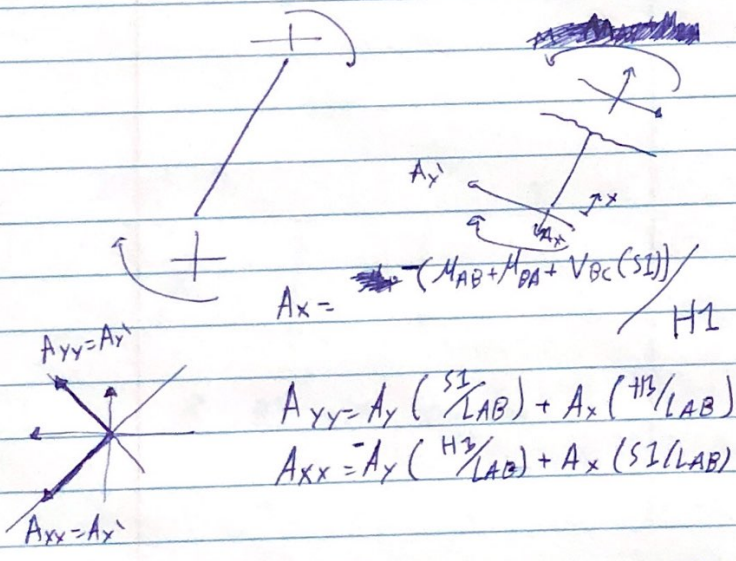 Ax'
x
Ax
Ax = -(MAB + MBA + VBC (S1)) / H1
Ayy = Ay'
Ayy = Ay (S1/LAB) + Ax (H1/LAB)
Axx = -Ay (H1/LAB) + Ax (S1/LAB)
Axx = Ax'